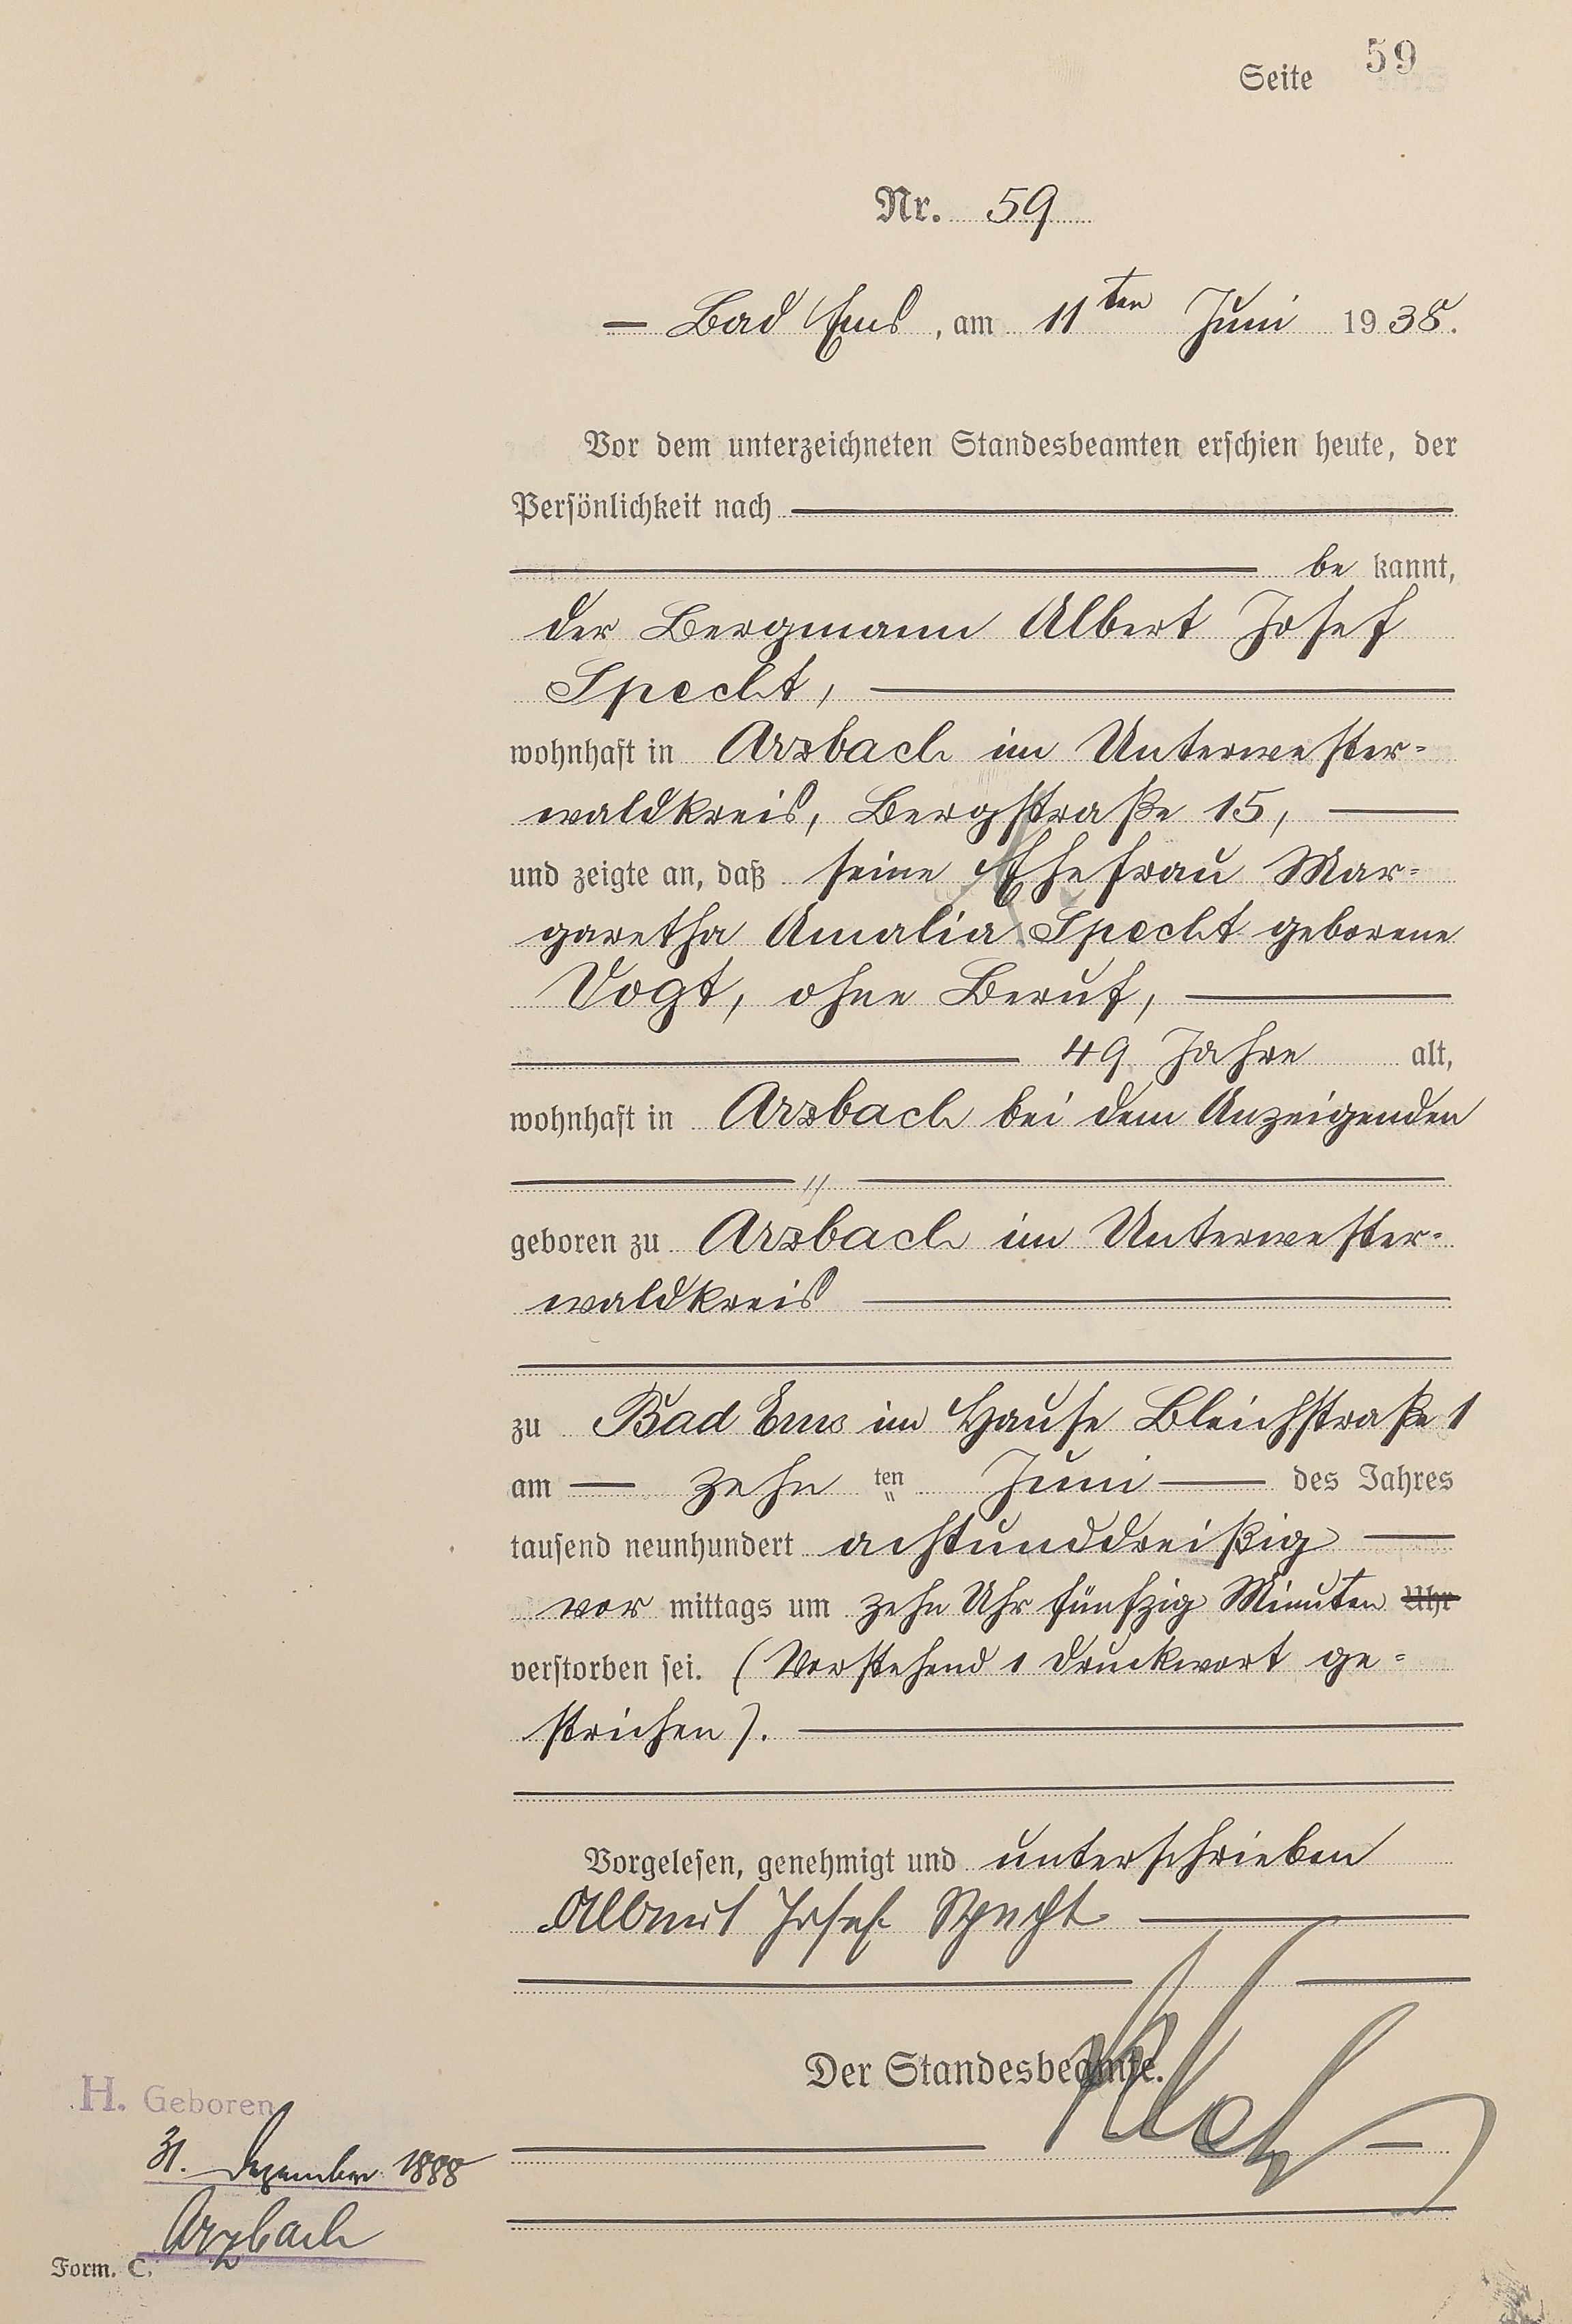 Seite 59
Nr. 59
— Bad Ems, am 11ten Juni 1938.
Vor dem unterzeichneten Standesbeamten erschien heute, der
Persönlichkeit nach
be kannt,
der Bergmann Albert Josef
Specht,
wohnhaft in Arzbach im Unterwester-
waldkreis, Bergstraße 15,
und zeigte an, daß seine Ehefrau Mar-
garetha Amalia Specht geborene
Vogt, ohne Beruf,
49 Jahre alt,
wohnhaft in Arzbach bei dem Anzeigenden
"
geboren zu Arzbach im Unterwester-
waldkreis
zu Bad Ems im Hause Bleichstraße 1
am — zehn ten Juni — des Jahres
tausend neunhundert achtunddreißig
vor mittags um zehn Uhr fünfzig Minuten Uhr
verstorben sei. (Vorstehend 1 Druckwort ge-
strichen).
Vorgelesen, genehmigt und unterschrieben
Albert Josef Specht
Der Standesbeamte.
H. Geboren
31. Dezember 1888
Arzbach
Form. C.